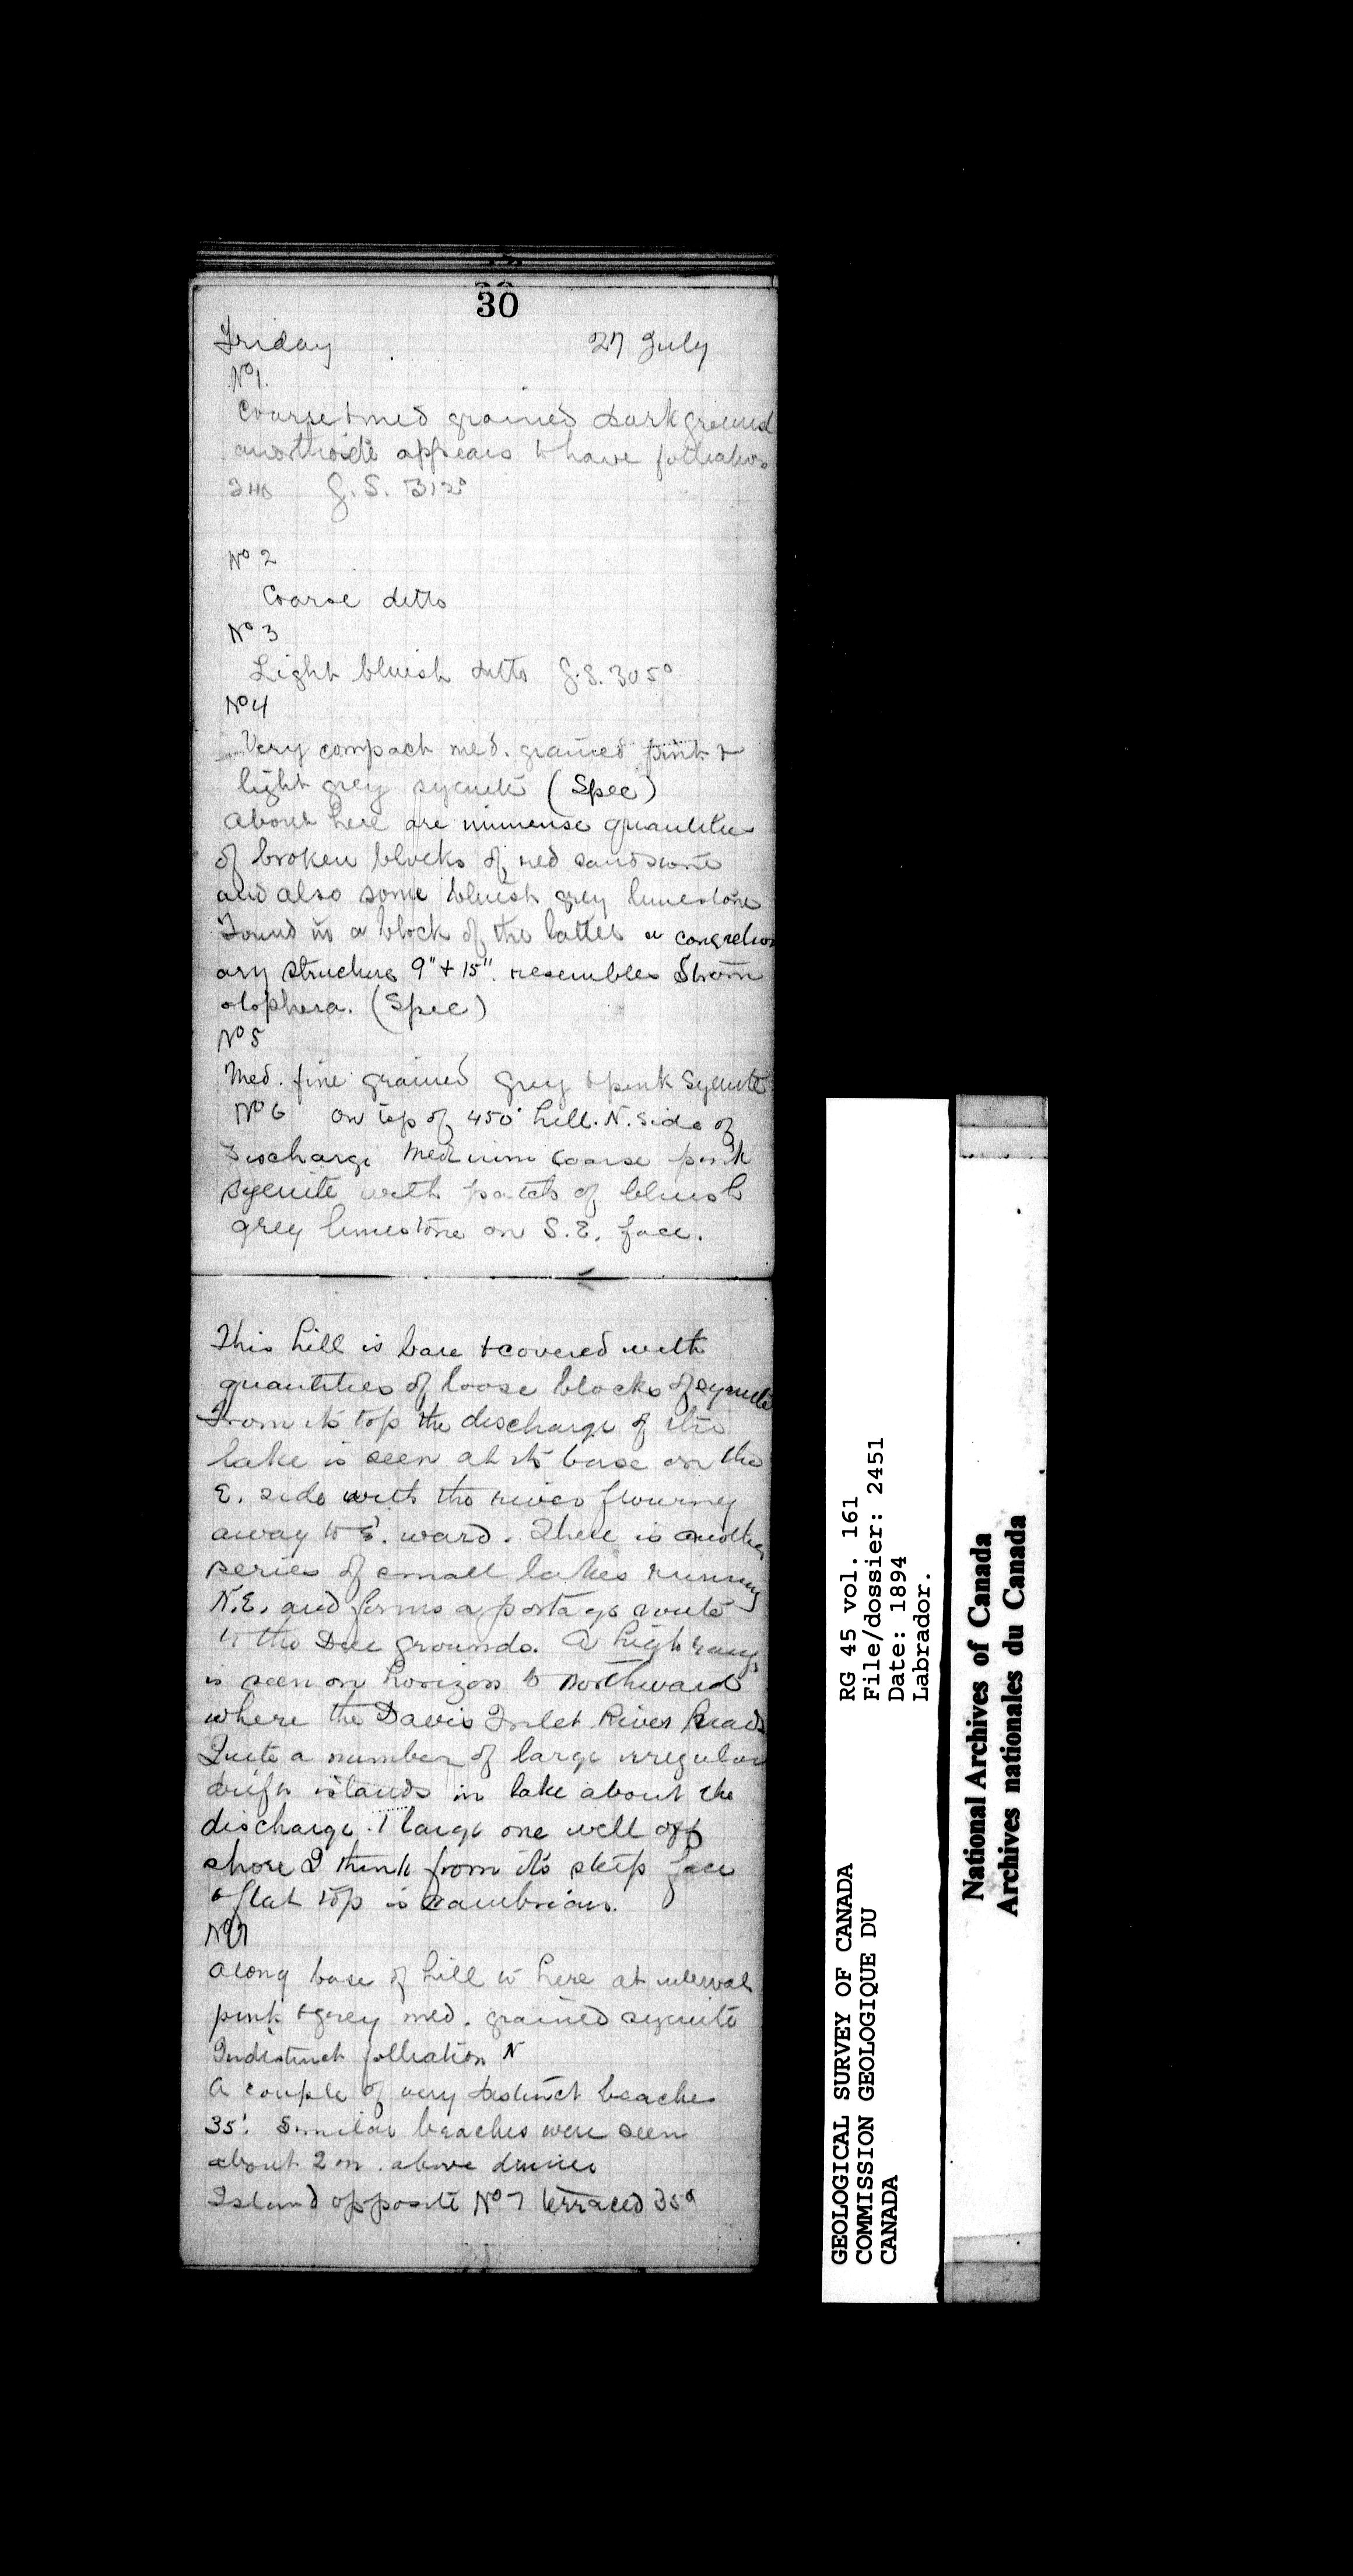 30
Friday 27 July
No 1.
Coarse + med grained dark
anorthosite appears to have foliation
G.S. 312°
No 2
Coarse ditto
No 3
Light bluish ditto G.S. 305°
No 4
Very compact med. grained pink +
light grey syenite (Spec)
About here are immense quantities
of broken blocks of red sandstone
and also some bluish grey limestone
Found in a block of the latter a concretion
ary structure 9" + 15". resembles Strom
(Spec)
No 5
Med. fine grained grey + pink Syenite
No 6 on top of 450' hill. N. side of
Discharge Medium coarse pink
syenite with patch of bluish
grey limestone on S.E. face.
This hill is bare + covered with
quantities of loose blocks of syenite
From its top the discharge of the
lake is seen at its base on the
E. side with the river flowing
away to E. ward. There is another
series of small lakes running
N.E. and forms a portage route
to the Deer grounds. A high range
is seen on horizon to northward
where the Davis Inlet River heads
Quite a number of large irregular
drift islands in lake about the
discharge. 1 large one well off
shore I think from its steep face
+ flat top is cambrian.
No 7
Along base of hill to here at intervals
pink + grey med. grained syenite
Indistinct folliation N
A couple of very distinct beaches
35'. Similar beaches were seen
about 2 m. above dinner
Island opposite No 7 terraced 35°
GEOLOGICAL SURVEY OF CANADA
COMMISSION GEOLOGIQUE DU
CANADA
RG 45 vol. 161
File/dossier: 2451
Date: 1894
Labrador.
National Archives of Canada
Archives nationales du Canada